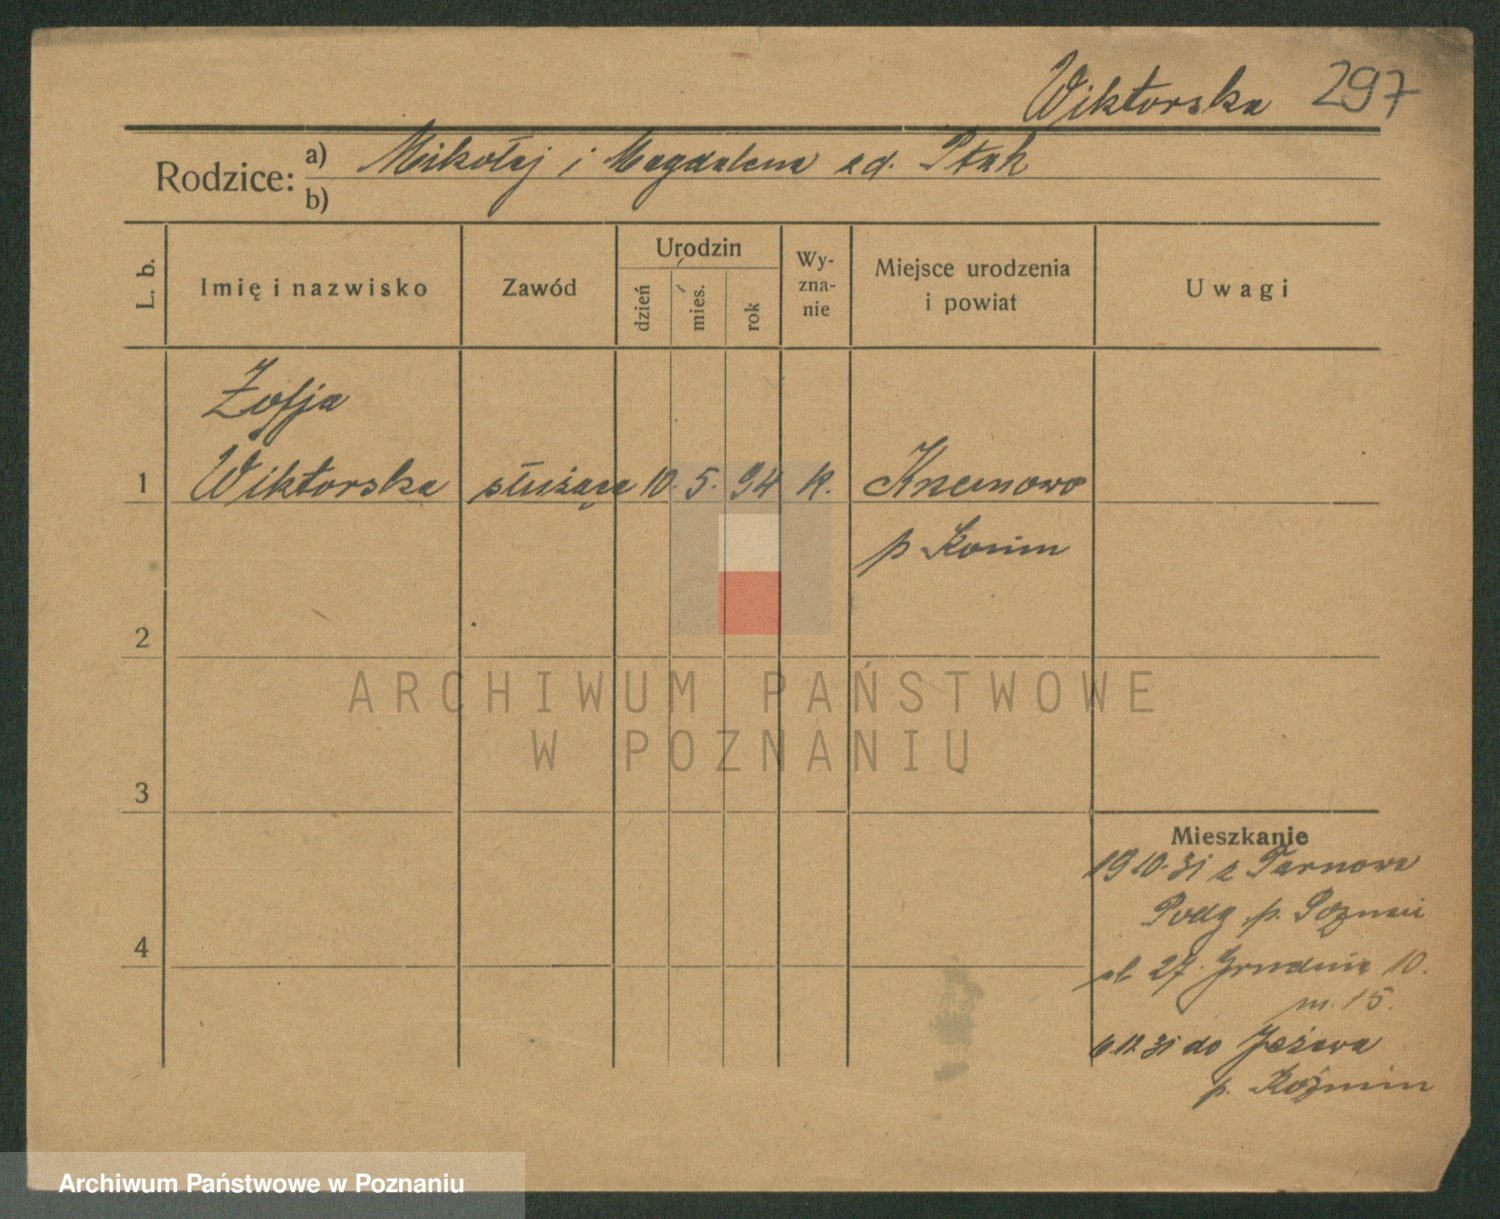 Wiktorska 297
Rodzice: a) Mikołaj i Magdalena Ptak
b)
L. b.
Imię i nazwisko
Zawód
Urodzin
dzień
mies.
rok
Wy-
zna-
nie
Miejsce urodzenia
i powiat
Uwagi
Zofja
1 Wiktorska służąca 10. 5. 94 k.
p
2
3
4
Mieszkanie
19 10.31 z Tarnowa
Podg p. Poznań
27 Grudnia 10.
m. 15.
6 12 31 do Jeżewa
p. Koźmin
ARCHIWUM PAŃSTWOWE
W POZNANIU
Archiwum Państwowe w Poznaniu